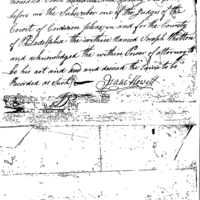 before me the Subscriber one of the Judges of the
Court of Common pleas in and for the County
of Philadelphia the within Named Joseph Wharton
and acknowledged the within Power of attorney to
be his act and deed and desired the Same to be
Recorded as Such
Isaac Howell